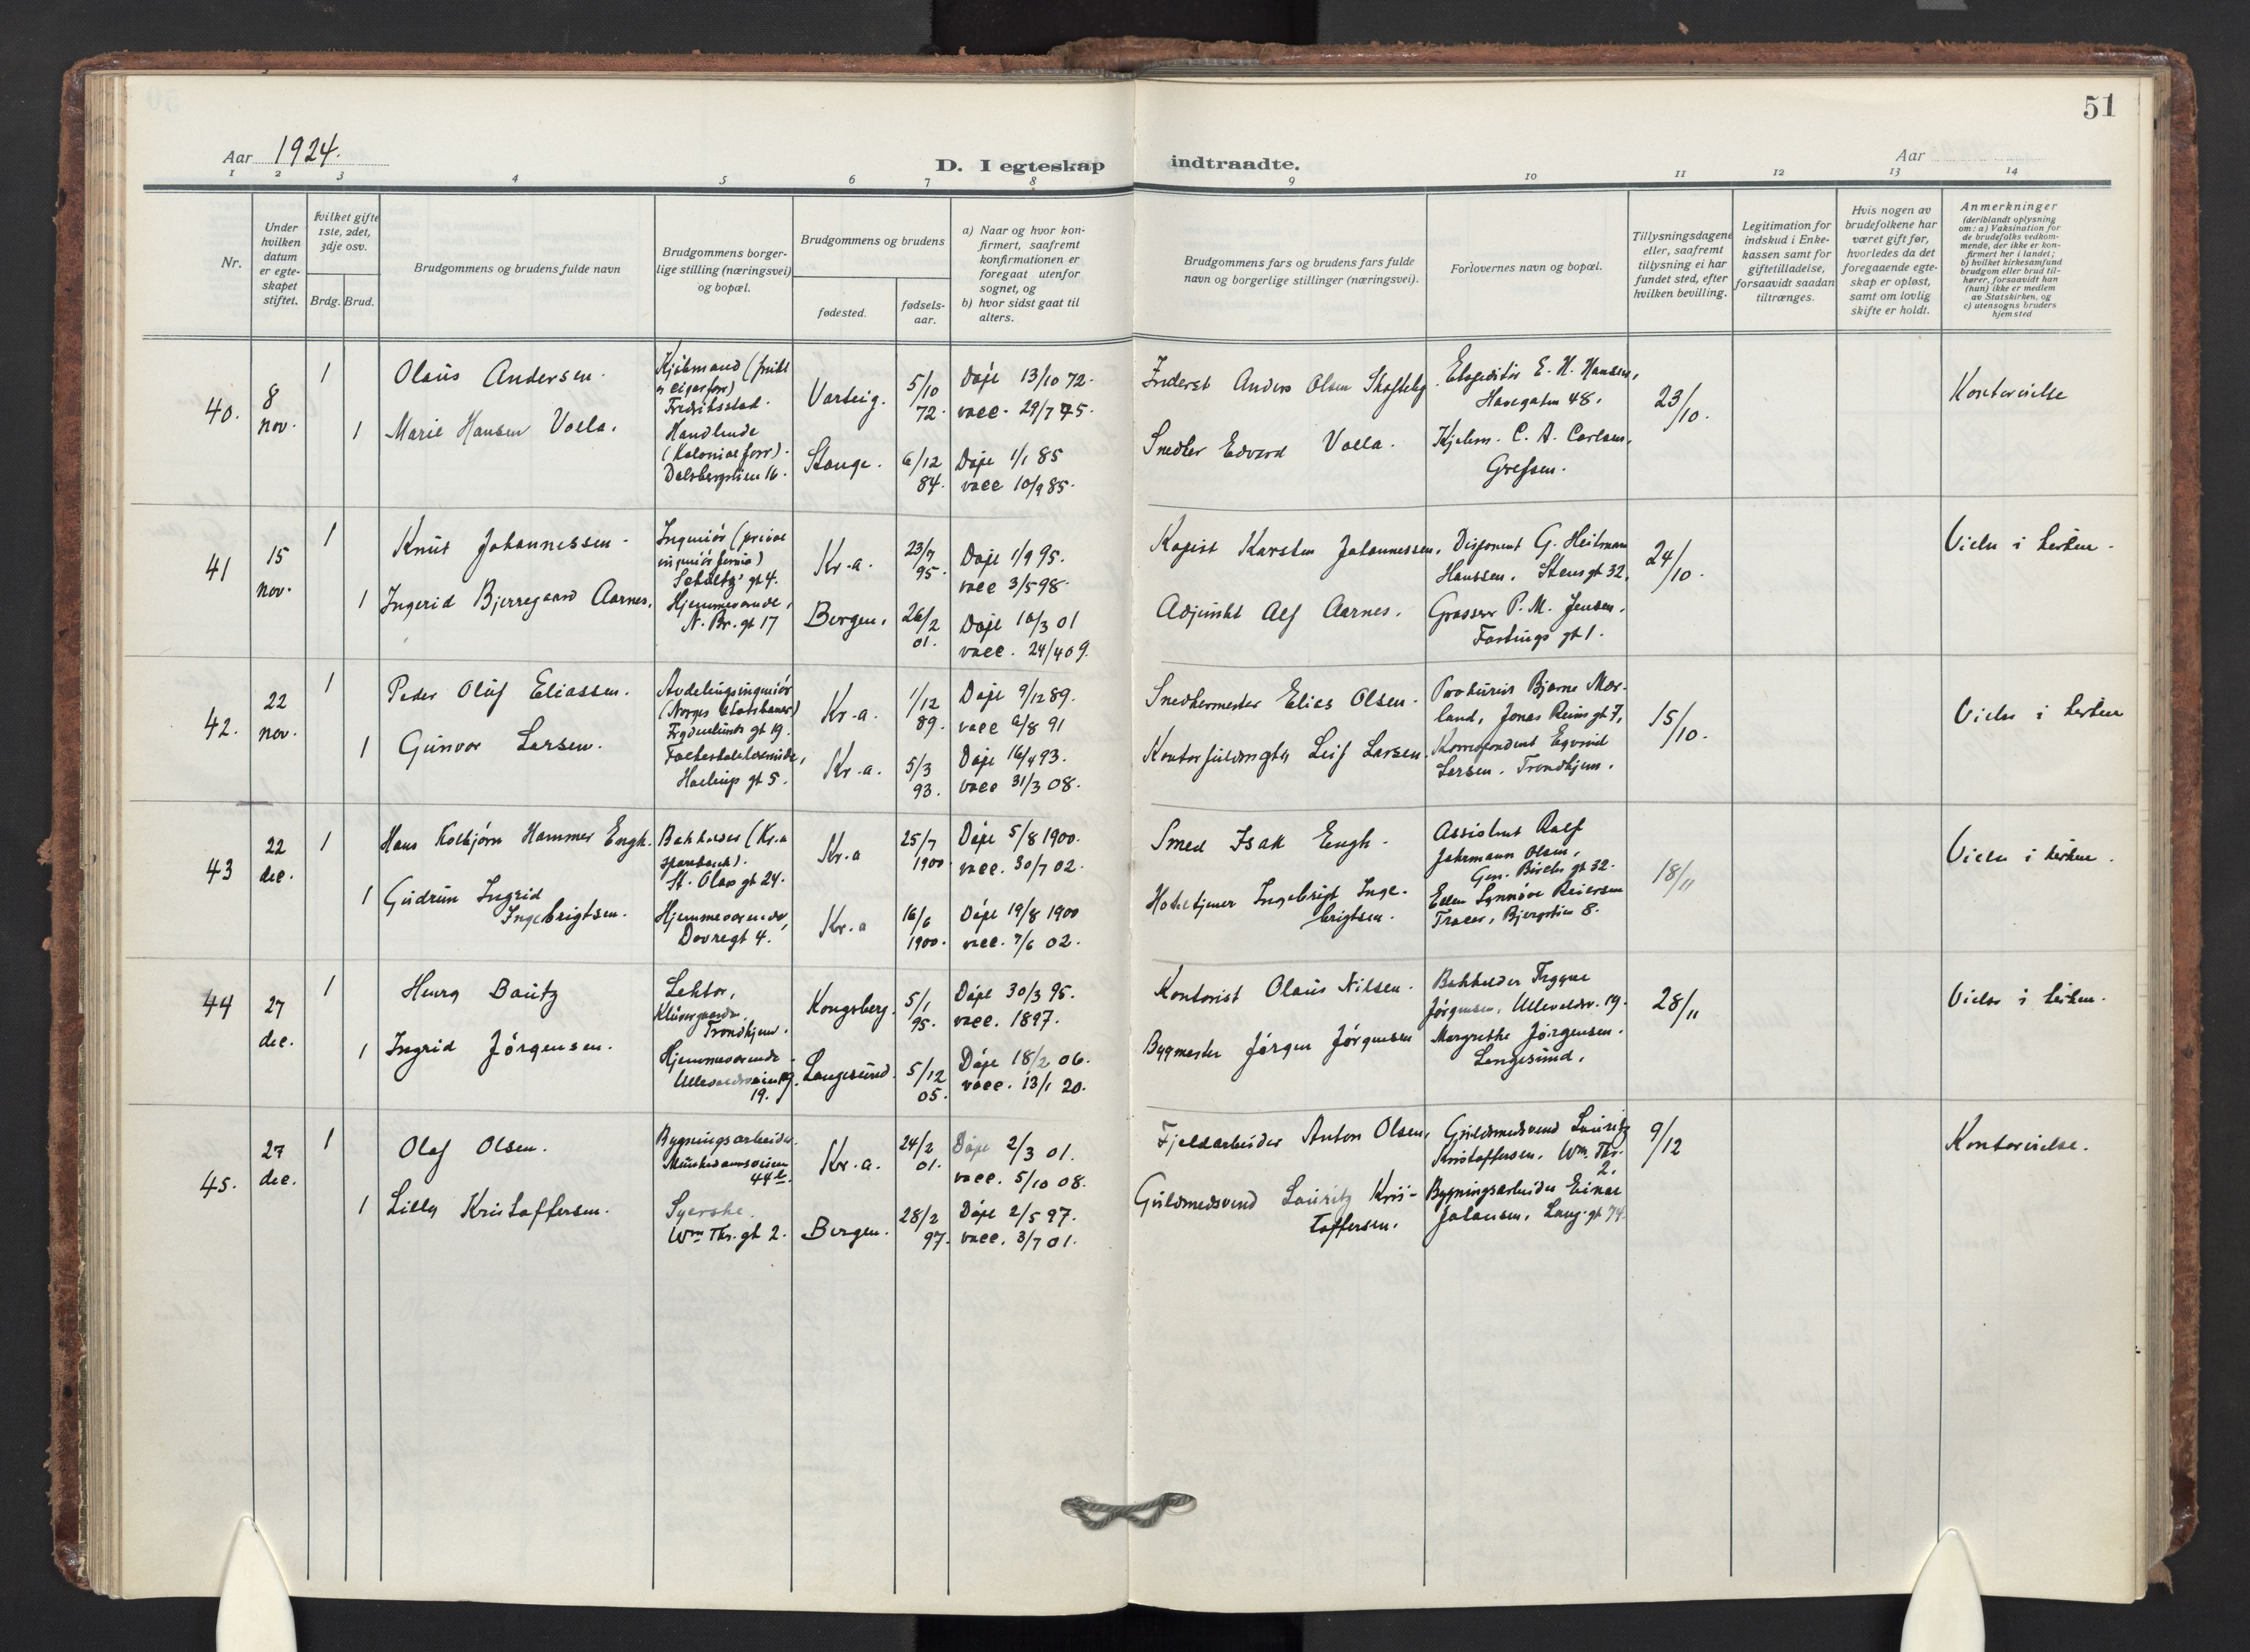 51
Aar 1924.
D. I egteskap indtraadte.
Aar
1 2 3 4 5 6 7 8 9 10 11 12 13 14
Nr.
Under hvilken datum er egte-skapet stiftet.
hvilket gifte 1ste, 2det, 3dje osv.
Brdg. Brud.
Brudgommens og brudens fulde navn
Brudgommens borger-
lige stilling (næringsvei)
og bopæl.
Brudgommens og brudens
fødested.
fødsels-
aar.
a) Naar og hvor kon-
firmert, saafremt
konfirmationen er
foregaat utenfor
sognet, og
b) hvor sidst gaat til
alters.
Brudgommens fars og brudens fars fulde
navn og borgerlige stillinger (næringsvei).
Forlovernes navn og bopæl.
Tillysningsdagene
eller, saafremt
tillysning ei har
fundet sted, efter
hvilken bevilling.
Legitimation for
indskud i Enke-
kassen samt for
giftetilladelse,
forsaavidt saadan
tiltrænges.
Hvis nogen av
brudefolkene har
været gift før,
hvorledes da det
foregaaende egte-
skap er opløst,
samt om lovlig
skifte er holdt.
Anmerkninger
(deriblandt oplysning
om: a) Vaksination for
de brudefolks vedkom-
mende, der ikke er kon-
firmert her i landet;
b) hvilket kirkesamfund
brudgom eller brud til-
hører, forsaavidt han
(hun) ikke er medlem
av Statskirken, og
c) utensogns bruders
hjemsted
40.
8
nov.
1
Olaus Andersen.
Fredriksstad.
Varteig.
5/10
72.
Døpt 13/10 72.
vacc. 29/7 75.
Inderst Anders Olsen
E. H. Hansen,
Havegaten 48.
23/10.
Kontorvielse
1
Marie Hansen Volla.
Handlende
(Kolonialforr).
Dalsbergstien 16.
Stange.
6/12
84.
Døpt 1/1 85
vacc 10/9 85.
Snedker Edvard Volla.
Kjøbm. C. A. Carlsen,
Grefsen.
41
15
nov.
1
Knut Johannessen.
Ingeniør (privat
ingeniørfirma)
Schultz' gt 4.
Kr.a.
23/7
95.
Døpt 1/9 95.
vacc 3/5 98.
Kopist Karsten Johannessen.
Disponent G. Heitmann
Hanssen. Stensgt 32.
24/10.
Vielse i kirken.
1
Ingerid Bjerregaard Aarnes.
Hjemmeværende,
N. Br. gt 17
Bergen.
26/2
01.
Døpt 16/3 01
vacc. 24/4 09.
Adjunkt Alf Aarnes.
Grosser P. M. Jensen.
Fastings gt 1.
42.
22
nov.
1
Peder Oluf Eliassen.
Avdelingsingeniør
(Norges Statsbaner)
Frydenlunds gt 19.
Kr.a.
1/12
89.
Døpt 9/12 89.
vacc 6/8 91
Snedkermester Elias Olsen.
Prokurist Bjarne Mør-
land, Jonas Reins gt 7,
15/10.
Vielse i kirken
1
Gunvor Larsen.
Hallings gt 5.
Kr.a.
5/3
93.
Døpt 16/4 93.
vacc 31/3 08.
Kontorfuldmægtig Leif Larsen.
Korrespondent Egvind
Larsen. Trondhjem.
43
22
dec.
1
Hans Kolbjørn Hammer Engh.
Bokholder (Kr.a
sparebank).
St. Olavs gt 24.
Kr.a
25/7
1900
Døpt 5/8 1900.
vacc. 30/7 02.
Smed Isak Engh.
Assistent Ralf
Jahrmann Olsen,
Gen. Birchs gt 32.
18/11
Vielse i kirken.
1
Gudrun Ingrid
Ingebrigtsen.
Hjemmeværende,
Dovregt 4.
Kr.a
16/6
1900.
Døpt 19/8 1900
vacc. 7/6 02.
Hoteltjener Ingebrigt Inge-
brigtsen.
Ellen Synnøve Reiersen
Bjergstien 8.
44
27
dec.
1
Henry Bautz
Lektor,
Trondhjem.
Kongsberg.
5/1
95.
Døpt 30/3 95.
vacc. 1897.
Kontorist Olaus Nilsen.
Bokholder Trygve
Jørgensen, Ullevoldsv. 19.
28/11
Vielse i kirken.
1
Ingrid Jørgensen.
Hjemmeværende
Ullevoldsveien
19.
Langesund.
5/12
05.
Døpt 18/2 06.
vacc. 13/1 20.
Bygmester Jørgen Jørgensen
Margrethe Jørgensen.
Langesund.
45.
27
dec.
1
Olaf Olsen.
Bygningsarbeider.
Munkedamsveien
44
Kr.a.
24/2
01.
Døpt 2/3 01.
vacc. 5/10 08.
Fjeldarbeider Anton Olsen.
Guldsmedsvend Lauritz
Kristoffersen. Wm. Thr.
2.
9/12
Kontorvielse.
1
Lilly Kristoffersen.
Syerske.
Wm Thr. gt 2.
Bergen.
28/2
97.
Døpt 2/5 97.
vacc. 3/7 01.
Guldsmedsvend Lauritz Kris-
toffersen.
Bygningsarbeider Einar
Johansen, Lang. gt 74.